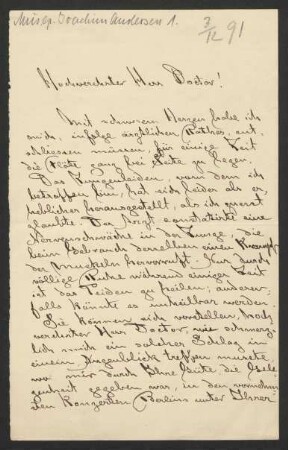 Musiker Joachim Andersen 1.
3/12 91
Hochverehrter Herr Doctor!
Mit schwerem Herzen habe ich
mich, infolge ärztlichen Rathes, ent,
schliessen müssen für einige Zeit
die Flöte ganz bei Seite zu legen.
Das Zungenleiden, von dem ich
betroffen bin, hat sich leider als er,
heblicher herausgestellt, als ich zuerst
glaubte. Der Arzt constatirte eine
Nervenschwäche in der Zunge, die
beim Gebrauch derselben einen Krampf
der Muskeln hervorruft. Nur durch
völlige Ruhe während einiger Zeit
ist das Leiden zu heilen; anderen,
falls könnte es unheilbar werden.
Sie können sich vorstellen, hoch,
verehrter Herr Doctor, wie schmerz,
lich mich ein solcher Schlag in
einem Augenblick treffen musste,
wo mir durch Ihre Güte die Gele,
genheit gegeben war, in den vornehm,
sten Konzerten Berlins unter Ihrer